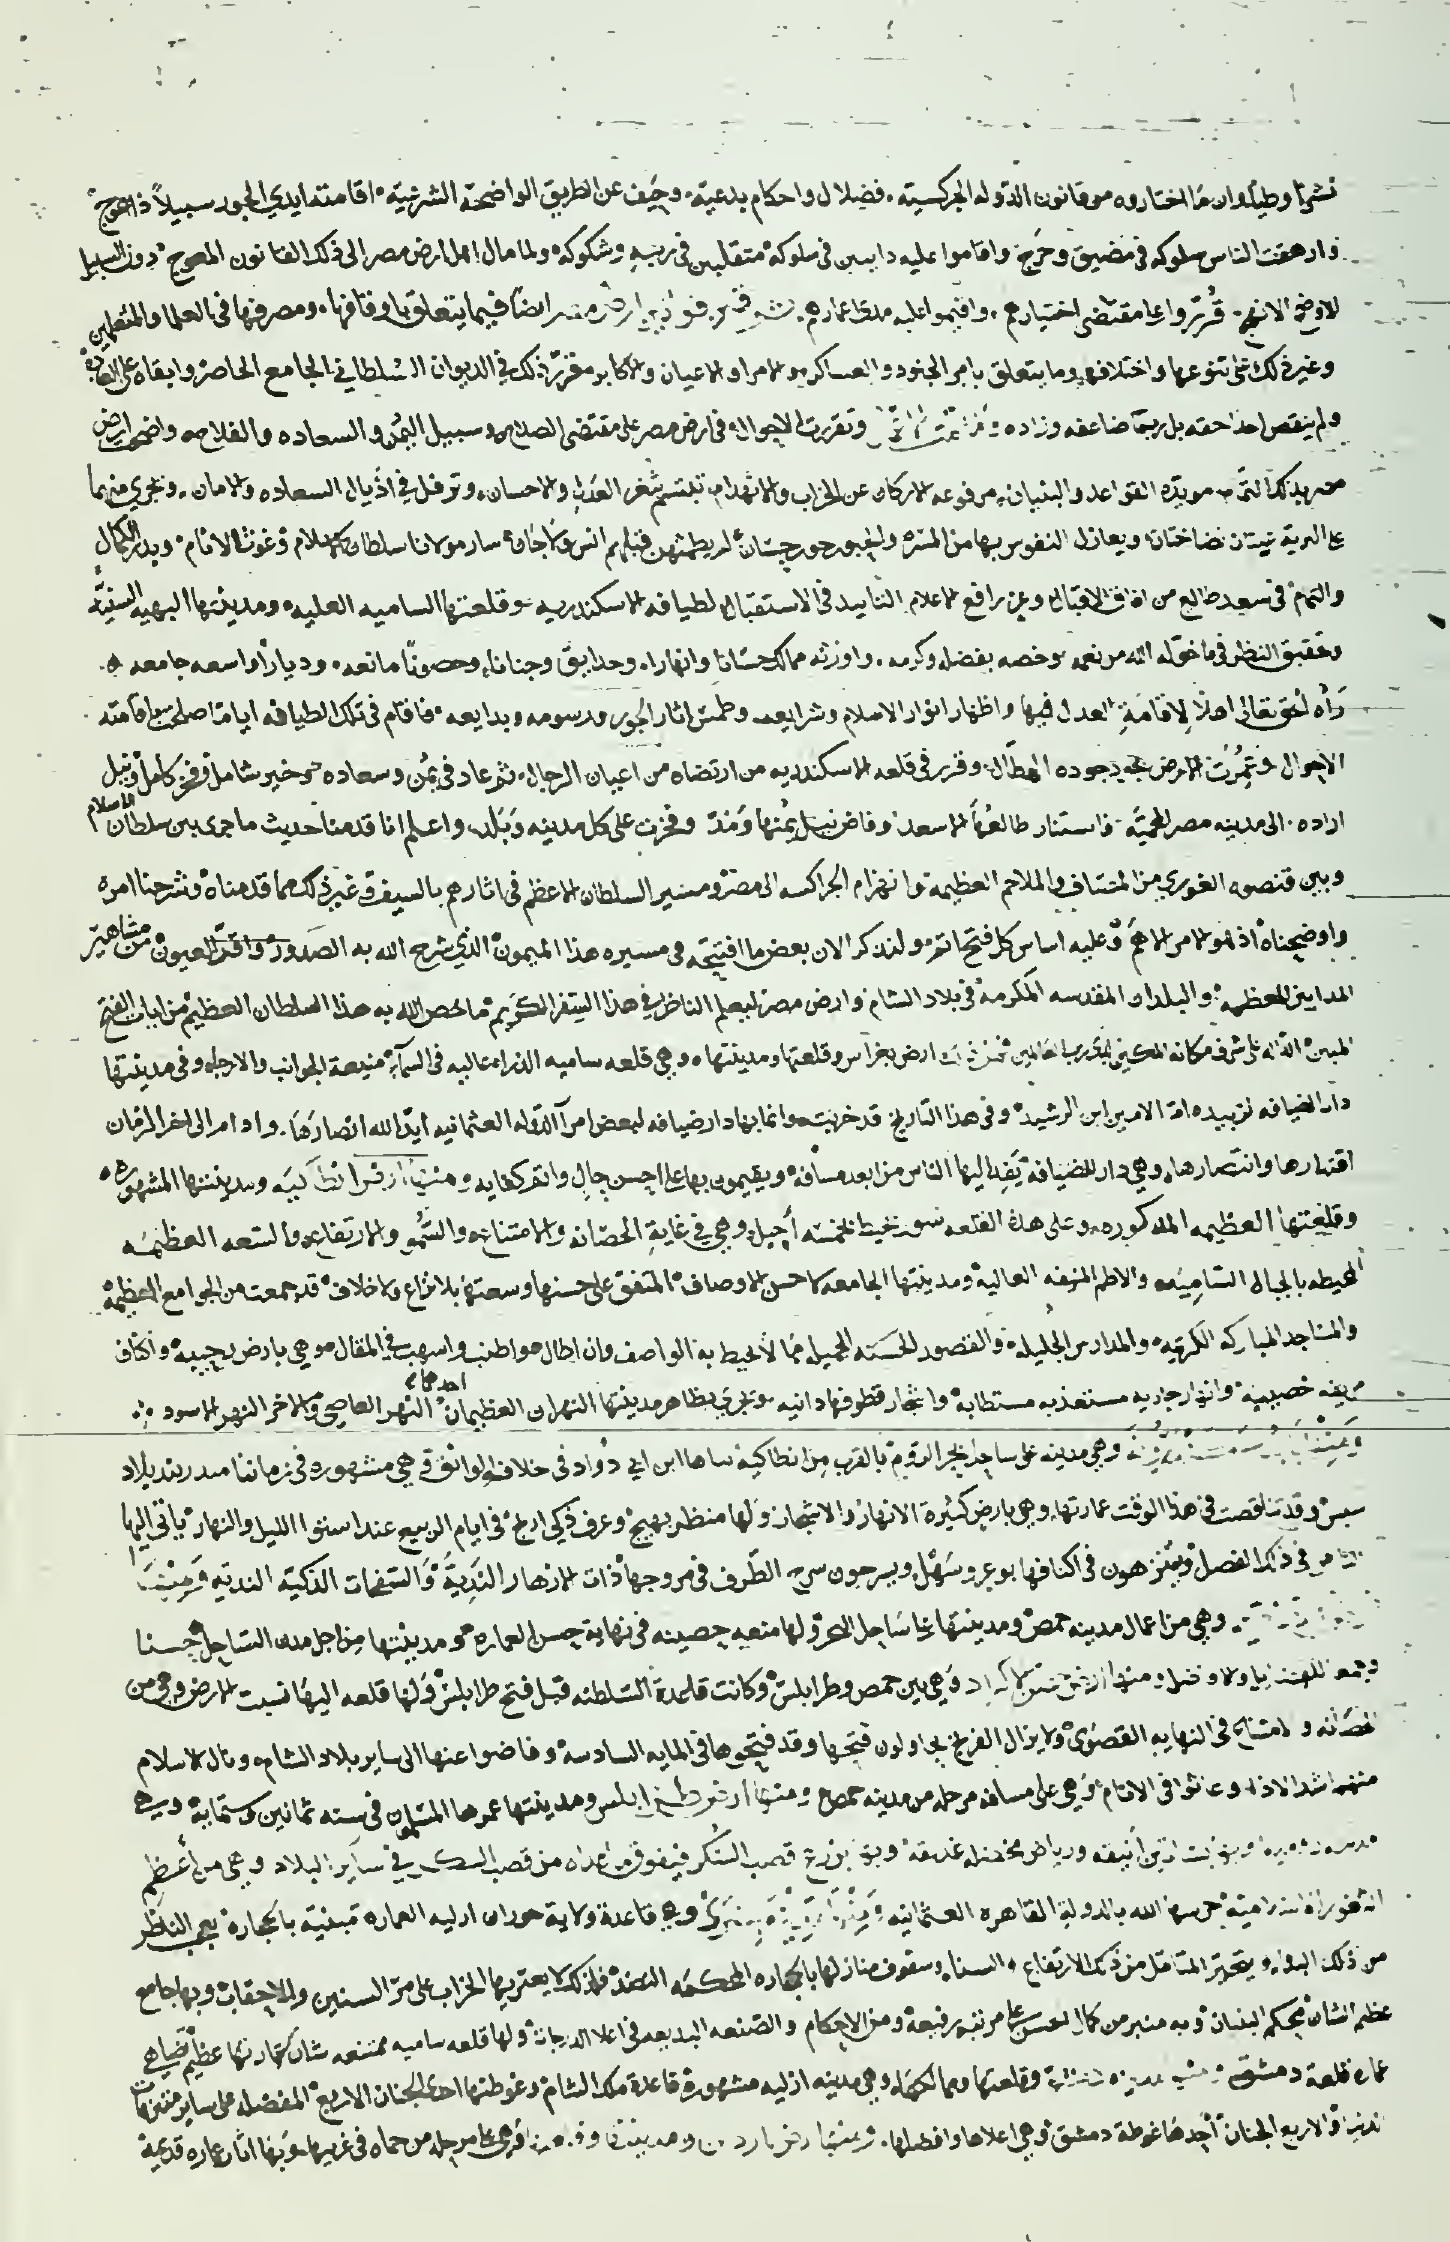 نشرتا وطيا وان ما اختاروه من قانون الدوله الجركسيته فضلال واحكام بدعيه وحيف عن الطريق الواضحة الشرعيه اقامته ايدي الجور سبيلاً ذا عوج
وارهقت الناس سلوكه في مضيق وحرج واقاموا عليه دايبين في سلوكه متقلبين في ريبه وشكوكه ولما مال اهل ارض مصر الى ذلك القانون المعوج دون السبيل
الاوضح الانهج قرروا على مقتضى اختيارهم واقيموا عليه مدى اعمارهم ارض مصر ايضا فيما يتعلق باوقافها ومصرفها في العلما والمتعلمين
وغير ذلك على تنوعها واختلافها وما يتعلق بامر الجنود والعساكر والامرا والاعيان والاكابر مقرر ذلك في الديوان السلطاني الجامع الحاصر وابقاه على العاده
ولم ينقص احدا حقه بل ربما ضاعفه وزاده وتقررت الاحوال في ارض مصر على مقتضى الصلاح وسبيل اليمن والسعاده والفلاح واضحت ارض
مصر بذلك مويده القواعد والبنيان مرفوعه الاركان عن الخراب والانهدام تبتسم ثغر العدل والاحسان وترفل في اذيال السعاده والامان وتجري منها
على البرية عينان نضاختان ويغازل النفوس بها من المسره والحبور حور حسان لم يطمثهن قبلهم انس ولا جان سار مولانا سلطان الاسلام وغوث الانام وبدر الكمال
والتمام في سعيد طالع من افاق الاقبال وعز رافع لاعلام التاييد في الاستقبال لطيافه الاسكندريه وقلعتها الساميه العليه ومدينتها البهيه السنيه
وتحقيق النظر في ما خوله الله من نعمه وخصه بفضله وكرمه واورثه ممالك حسانا وانهارا وحدايق وجنانا وحصونا مانعه وديارا واسعه جامعه
رآه الحق تعالى اهلاً لاقامة العدل فيها واظهار انوار الاسلام وشرايعه وطمس اثار الجور ورسومه وبدايعه فاقام في تلك الطيافه اياما اصلحت باقامته
الاحوال وعمرت الارض بجود جوده الهطال وقرر في قلعه الاسكندريه من ارتضاه من اعيان الرجال ثم عاد في يمن وسعاده وخير شامل وفخر كامل ونيل
اراده الى مدينه مصر المحميه واستنار طالعها الاسعد وفاض نيل يمنها ومد وفخرت على كل مدينه وبلد واعلم انا قدمنا حديث ما جرى بين سلطان الاسلام
وبين قنصوه الغوري من المصاف والملاحم العظيمه وانهزام الجراكسه الى مصر ومسير السلطان الاعظم في اثارهم بالسيف وغير ذلك مما قدمناه وشرحنا امره
واوضحناه اذ هو الامر الاهم وعليه اساس كل فتح اتم ولنذكر الان بعض ما افتتحه في مسيره هذا الميمون الذي شرح الله به الصدور واقر العيون من مشاهير
المداين المعظمه والبلدان المقدسه المكرمه في بلاد الشام وارض مصر ليعلم الناظر في هذا السفر الكريم ما خص الله به هذا السلطان العظيم من ايات الفتح
المبين الداله على شرف مكانه المكين لدى رب العالمين فمن ذلك ارض بغراس وقلعتها ومدينتها وهي قلعه ساميه الذرا عاليه في السمآء منيعة الجوانب والارجاء وفي مدينتها
دار الضيافه لزبيده ام الامين ابن الرشيد وفي هذا التاريخ قد خربت وانما بها دار ضيافه لبعض امرآ الدوله العثمانيه ايد الله انصارها وادام الى اخر الزمان
اقتدارها وانتصارها وهي دار للضيافه يفد اليها الناس من ابعد مسافه ويقيمون بها على احسن حال واتم كفايه ومنها ارض انطاكيه ومدينتها المشهوره
وقلعتها العظيمه المذكوره وعلى هذه القلعه سور تحيط بخمسه أجبل وهي في غاية الحصانه والامتناع والسمو والارتفاع والسعه العظيمه
المحيطه بالجبال الساميه والاطم المنيفه العاليه ومدينتها الجامعه لاحسن الاوصاف المتفق على حسنها وسعتها بلا نزاع ولا خلاف قد جمعت من الجوامع العظيمة
والمساجد المباركه الكريمه والمدارس الجليله والقصور الحسنه الجميله مما لا يحيط به الواصف وان اطال واطنب واسهب في المقال وهي بارض رحيبه واكناف
مريفه خصيبه وانهار جاريه مستعذبه مستطابه واشجار قطوفها دانيه وتجري بظاهر مدينتها النهران العظيمان احدهما النهر العاصي والاخر النهر الاسود
وهي مدينه على ساحل بحر الروم بالقرب من انطاكيه بناها ابن ابي دواد في خلافه الواثق وهي مشهوره في زماننا مندرية ببلاد
سيس وقد تناقصت في هذا الوقت عمارتها وهي بارض كثيرة الانهار والاشجار ولها منظر بهيج وعرف ذكي ارج في ايام الربيع عند استوا الليل والنهار ياتي اليها
الناس في ذلك الفصل ويتنزهون في اكنافها بوعر وسهل ويسرحون سرح الطرف في مروجها ذات الازهار الندية والنفحات الذكيه النديه ومنها
وهي من اعمال مدينه حمص ومدينتها على ساحل البحر ولها منعه حصينه في نهاية حسن العماره ومدينتها من اجل مدن الساحل حسنا
ومنها ارض حصن الاكراد وهي بين حمص وطرابلس وكانت قاعدة السلطنه قبل فتح طرابلس ولها قلعه اليها نسبت الارض وهي من
الحصانه والامتناع في النهايه القصوى ولا يزال الفرنج يحاولون فتحها وقد فتحوها في المايه السادسه وفاضوا عنها الى ساير بلاد الشام ونال الاسلام
منهم اشد الاذا وعاثوا في الانام وهي على مسافه مرحله من مدينه حمص ومنها ارض طرابلس ومدينتها عمرها المسلمون في سنه ثمانين وستمايه وهي
وبها بساتين أنيقه ورياض مخضله غدقه وبها يزرع قصب السكر فيفوق ما عداه من قصب السكر في ساير البلاد وهي من أعظم
الثغور الاسلامية حرسها الله بالدولة القاهره العثمانيه ومنها وهي قاعدة ولاية حوران ازليه العماره مبنية بالحجاره يعجب الناظر
من ذلك البناء ويتحير المتامل من ذلك الارتفاع والسناء وسقوف منازلها بالحجاره المحكمه النضد فلذلك لا يعتريها الخراب على مر السنين والاحقاب وبها جامع
عظيم الشان محكم البنيان وبه منبر من كمال الحسن على مرتبه رفيعة ومن الاحكام والصنعه البديعه في اعلا الدرجات ولها قلعه ساميه ممتنعه شان عمارتها عظيم تضاهي
عمارة قلعة دمشق ومنها مدينه دمشق وقلعتها وممالكها وهي مدينه ازليه مشهورة قاعدة ملك الشام وغوطتها احدى الجنان الاربع المفضله على ساير متنزهات
الدنيا والاربع الجنان أحدها غوطة دمشق وهي اعلاها وافضلها ومنها ارض بارين ومدينتها وهي على مرحله من حماه في غربيها وبها اثار عماره قديمة